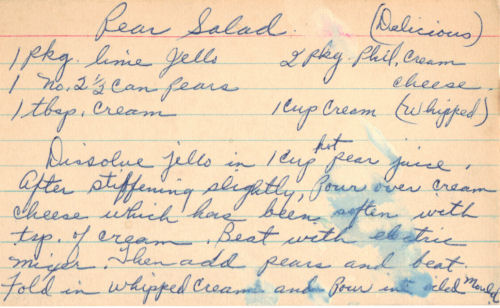 Pear Salad. (Delicious)
1 pkg. lime Jello 2 pkg. Phil. Cream
1 No. 2 1/2 can pears cheese.
1 tbsp. cream 1 cup cream (whipped)
Dissolve jello in 1 cup hot pear juice.
After stiffening slightly, pour over cream
cheese which has been soften with
tsp. of cream. Beat with electric
mixer. Then add pears and beat.
Fold in whipped cream and pour into oiled Mold